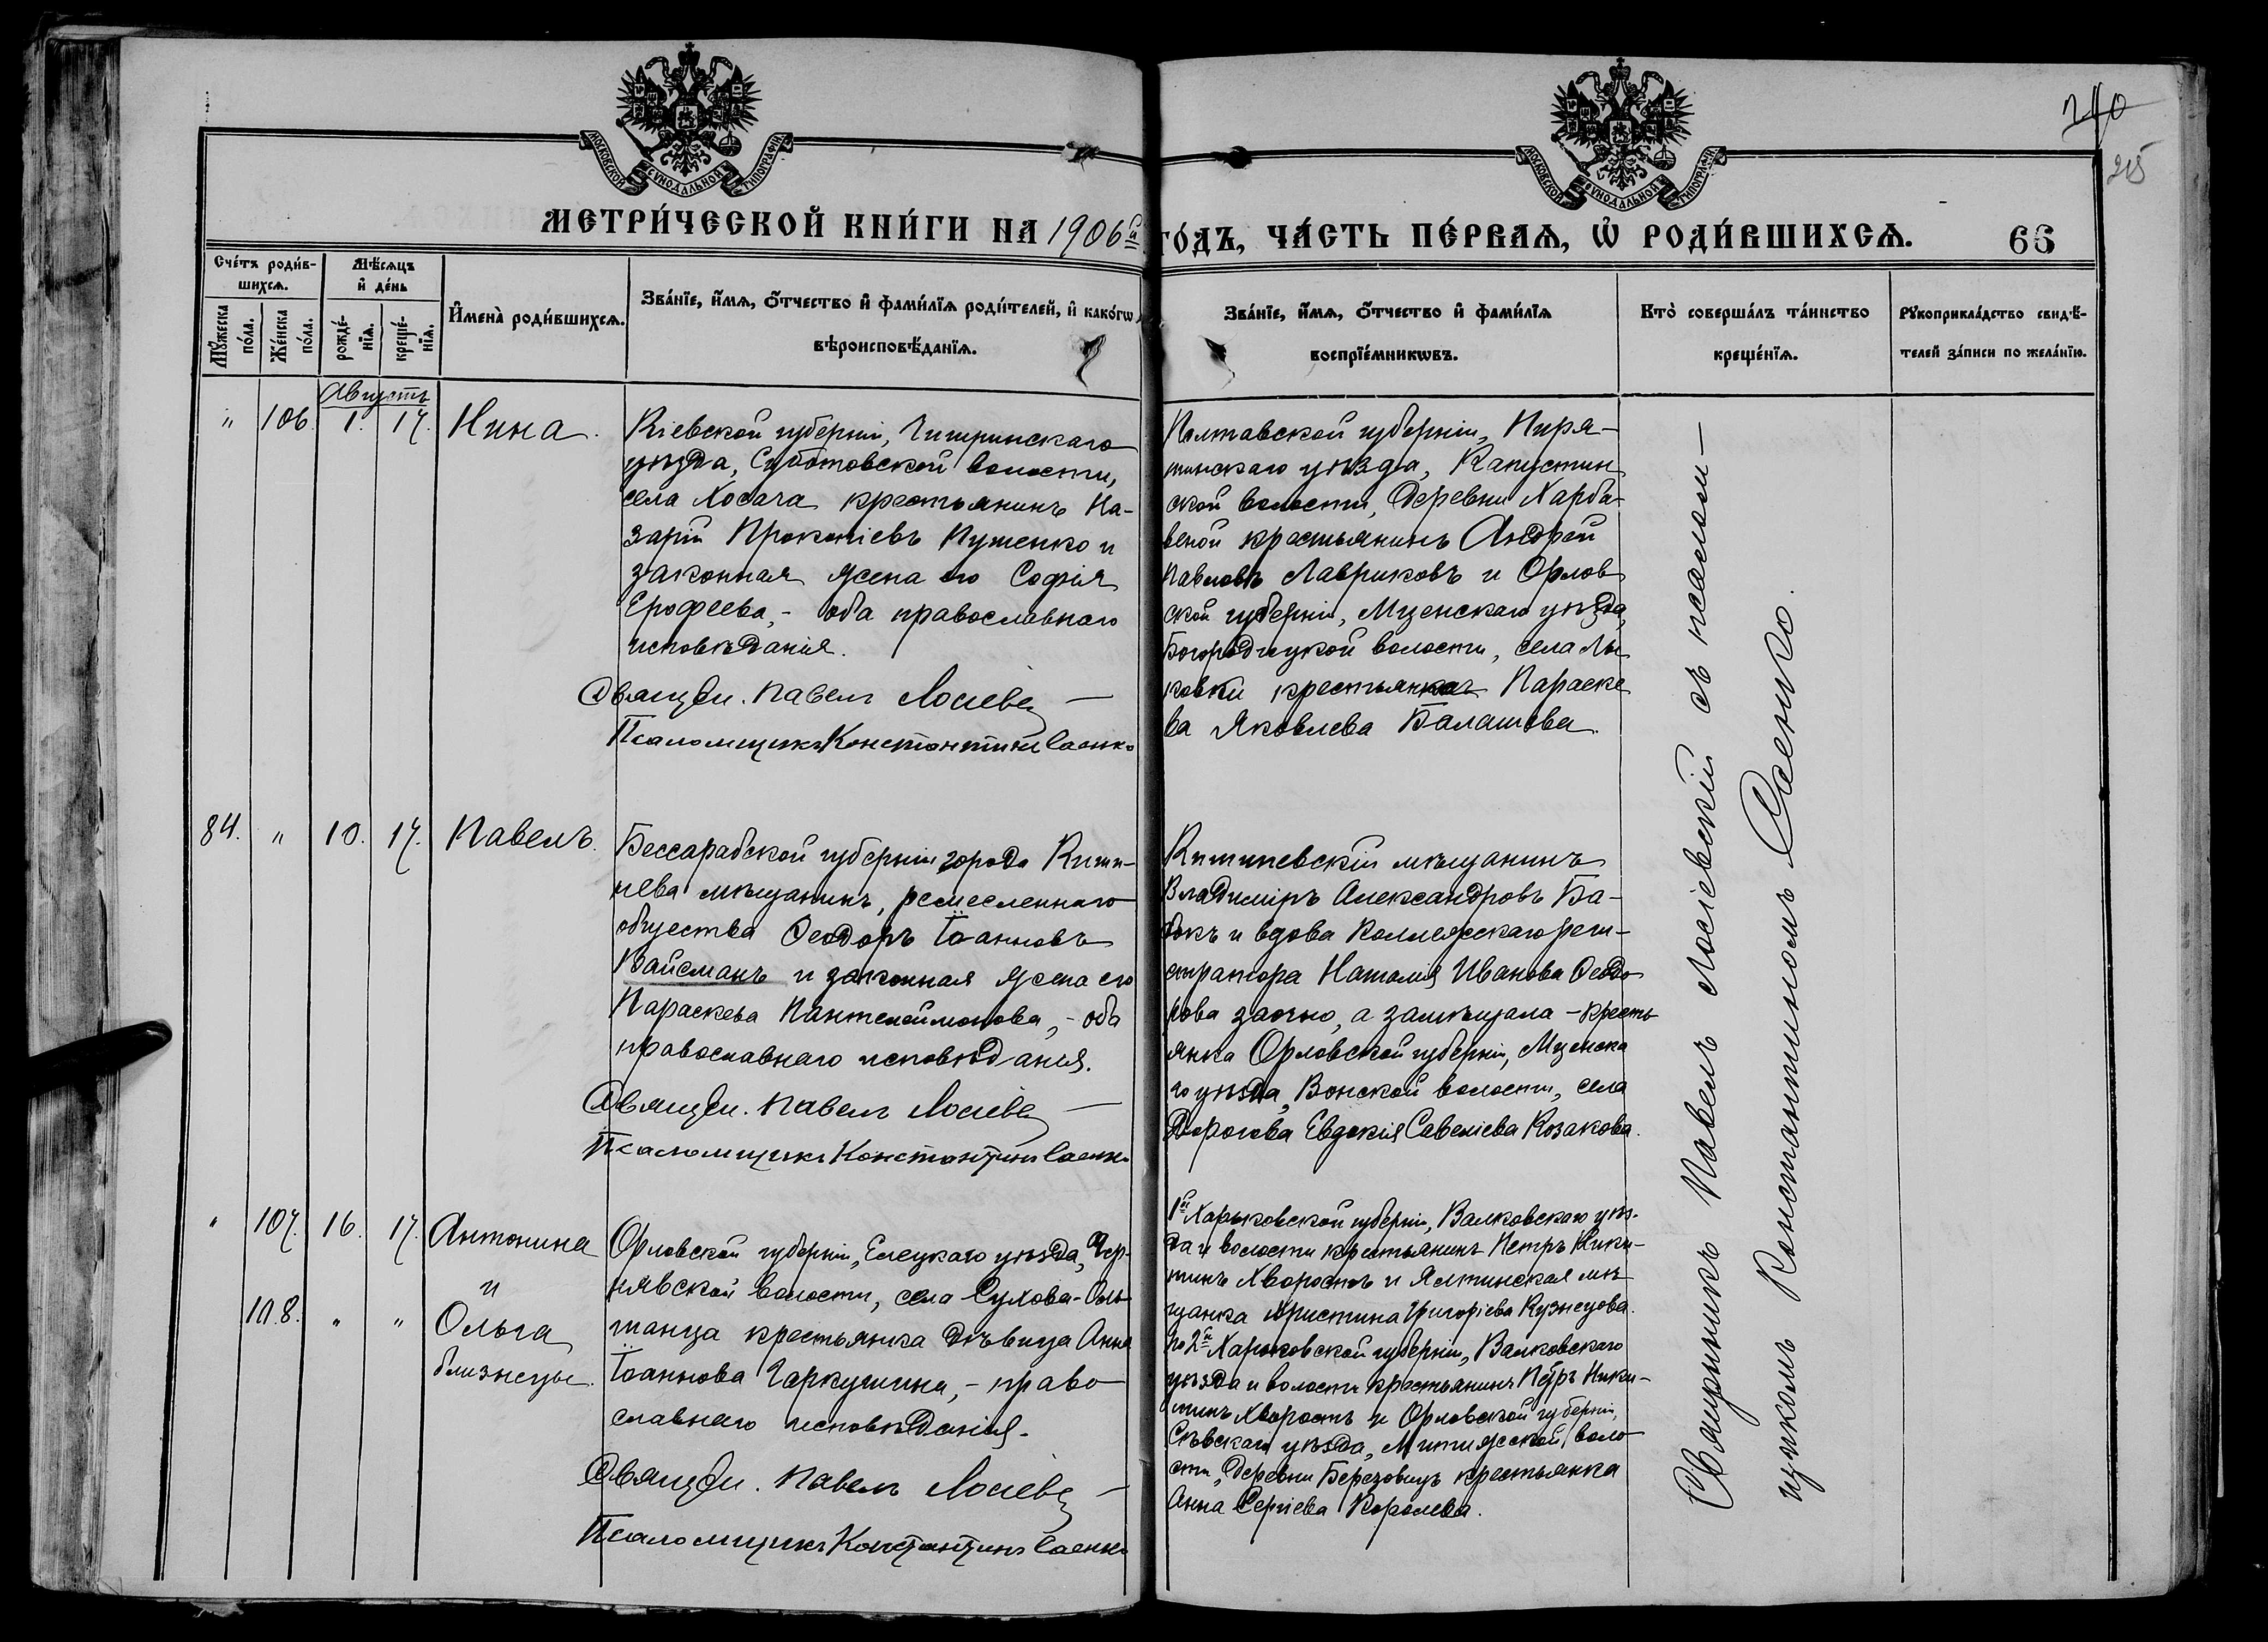 МОСКОВСКОЙ СѴНОДАЛЬНОЙ ТИПОГРАФІИ.
МОСКОВСКОЙ СѴНОДАЛЬНОЙ ТИПОГРАФІИ.
210
215
МЕТРИ́ЧЕСКОЙ КНИ́ГИ НА 1906й ГО́ДЪ, ЧА́СТЬ ПЕ́РВАѦ, Ѡ҆ РОДИ́ВШИХСѦ. 66
Сче́тъ роди́в-
шихсѧ.
Мꙋ́жеска
по́ла.
Же́нска
по́ла.
Мѣ́сѧцъ
и҆ де́нь
рожде́-
нїѧ.
креще́-
нїѧ.
И҆мена̀ роди́вшихсѧ.
Зва́нїе, и҆́мѧ, ѻ҆́тчество и҆ фами́лїѧ роди́телей, и҆ како́гѡ
вѣроисповѣ́данїѧ.
Зва́нїе, и҆́мѧ, ѻ҆́тчество и҆ фами́лїѧ
воспрїе́мникѡвъ.
Кто̀ соверша́лъ та́инство
креще́нїѧ.
Рꙋкоприкла́дство свидѣ́-
телей за́писи по жела́нїю.
Августъ
" 106. 1. 17. Нина.
Кіевской губерніи, Чигиринскаго
уѣзда, Суботовской волости,
села Хосача крестьянинъ На-
зарій Прокопіевъ Пуженко и
законная жена его Софія
Ерофеева, - оба православнаго
исповѣданія.
Священ. Павелъ Лосіев
Псаломщикъ Константинъ Саенко
Полтавской губерніи, Пиря-
тинскаго уѣзда, Капустин
ской волости, деревни Харба-
веной крестьянинъ Андрей
Павловъ Лавриковъ и Орлов
ской губерніи, Мценскаго уѣзда,
Богородицкой волости, села Лы
ковки крестьянка Параске
ва Яковлева Балашова.
84. " 10. 17. Павелъ.
Бессарабской губерніи города Киши-
нева мѣщанинъ, ремесленнаго
общества Ѳеодоръ Іоанновъ
Вайсманъ и законная жена его
Параскева Пантелеймонова, - оба
православнаго исповѣданія.
Священ. Павелъ Лосіев
Псаломщикъ Константинъ Саенко
Кишиневскій мѣщанинъ
Владиміръ Александровъ Ба-
докъ и вдова Коллежскаго реги-
стратора Наталія Иванова Ѳедо
рова заочно, а замѣщала - кресть
янка Орловской губерніи, Мценска
го уѣзда, Вонской волости, села
Дорогова Евдокія Савеліева Козакова.
" 107. 16. 17. Антонина
и
108. " " Ольга
близнецы.
Орловской губерніи, Елецкаго уѣзда, Чер-
нявской волости, села Сухова-Оль-
шанца крестьянка дѣвица Анна
Іоаннова Гаркушина, - право
славнаго исповѣданія.
Священ. Павелъ Лосіев
Псаломщикъ Константинъ Саенко
1й Харьковской губерніи, Валковскаго уѣз-
да и волости крестьянинъ Петръ Ники-
тинъ Хворостъ и Ялтинская мѣ
щанка Христина Григоріева Кузнецова.
2й Харьковской губерніи, Валковскаго
уѣзда и волости крестьянинъ Петръ Ники-
тинъ Хворостъ и Орловской губерніи,
Сѣвскаго уѣзда, воло
сти, деревни Березовицъ крестьянка
Анна Сергіева Королева.
Священникъ Павелъ Лосіевскій съ псалом-
щикомъ Константиномъ Саенко.